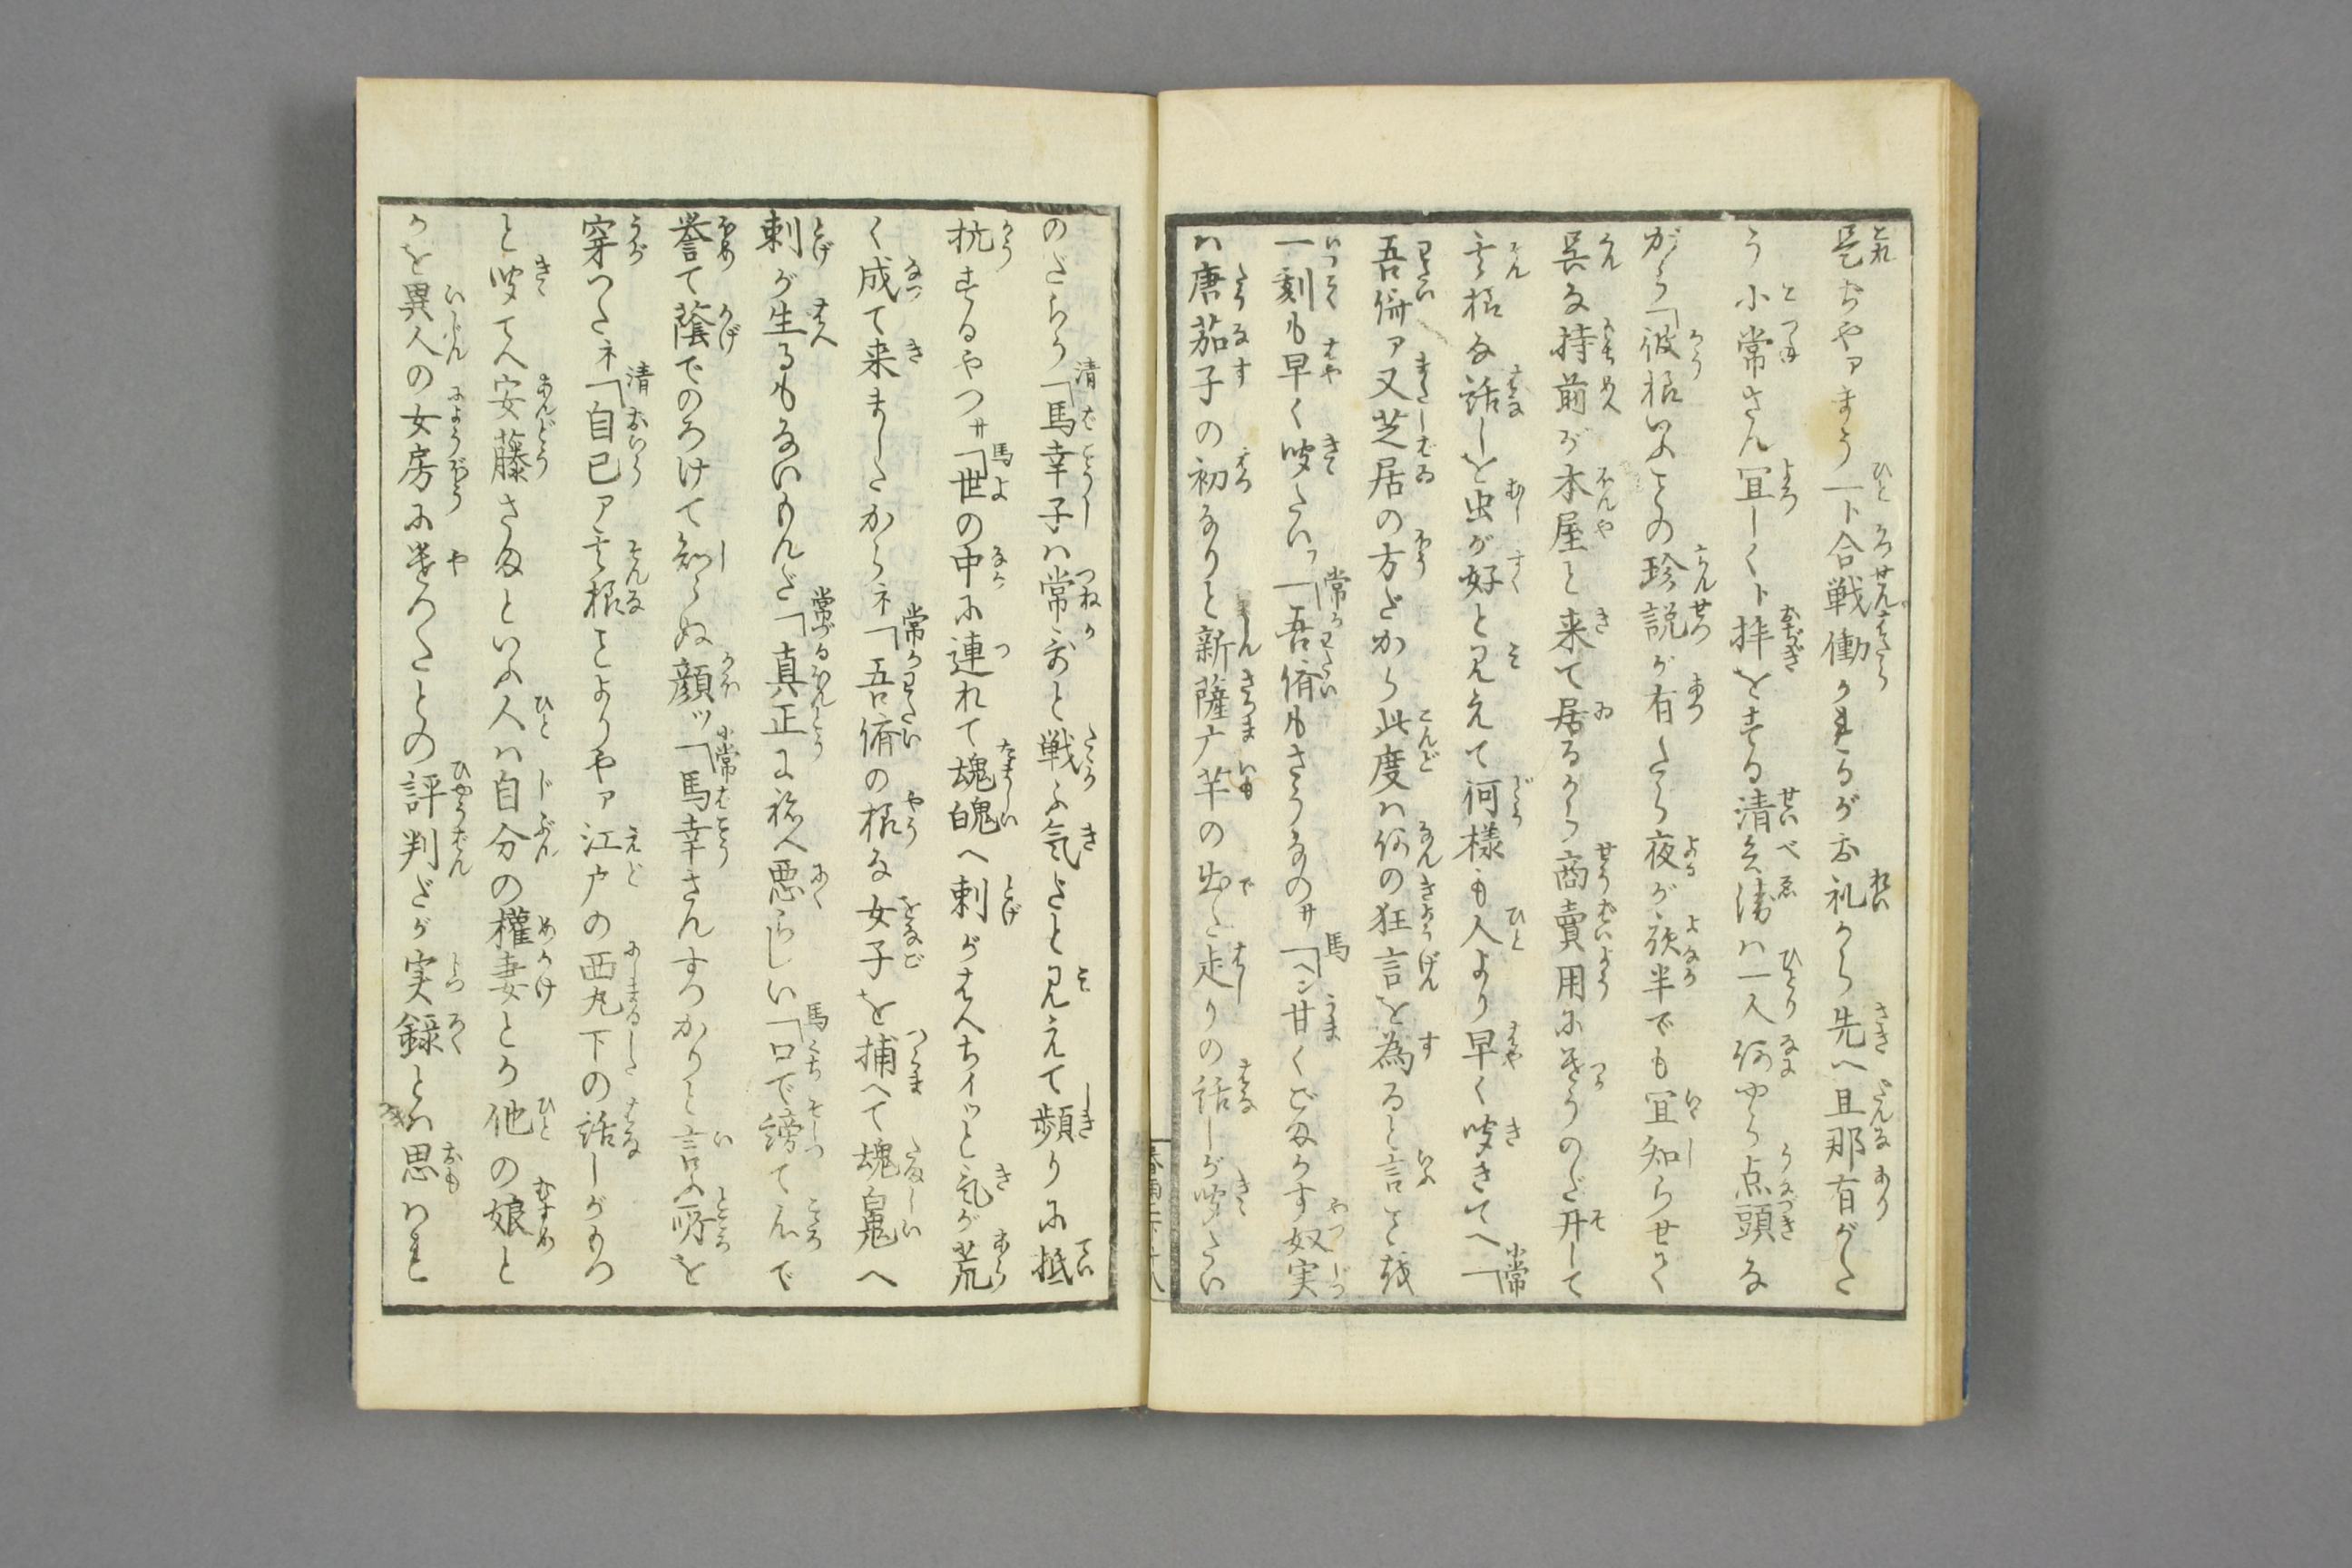 是ぢやアまう一ト合戦働かれるが御礼から先へ旦那有がた
う小常さん宜しくト拝をする清兵衛ハ一人何やら点頭な
がら「彼様いふことの珍説が有たら夜が夜半でも宜知らせて
呉な持前が本屋と来て居るから商賣用に遣うのだ而して
其様な話しを虫が好と見えて何様も人より早く聞きてへ「小常
吾儕ア又芝居の方だから此度ハ何の狂言を為ると言こ
一刻も早く聞たいッ「常吾儕もさうなのサ「馬ヘン甘くごまかす奴実
ハ唐茄子の初なりと新薩广芋の出た走りの話しが聞たい
のだらう「清馬幸子ハ常公と戦ふ気だと見えて頻りに抵
抗するやつサ「馬世の中に連れて魂魄へ刺がはへちイッと気が荒
く成て来ましたからネ「常吾儕の様な女子を捕へて魂魄へ
刺が生るもないもんだ「常真正に悪らしい「馬口で謗て心で
誉て蔭でのろけて知らぬ顔ッ「小常馬幸さんすつかりと言ふ所を
穿つたネ「清自己ア其様ことよりやア江户の西丸下の話しがもつ
と聞てへ安藤さまといふ人ハ自分の權妻とか他の娘と
かを異人の女房に遣つたとの評判だが実録とハ思ハれ